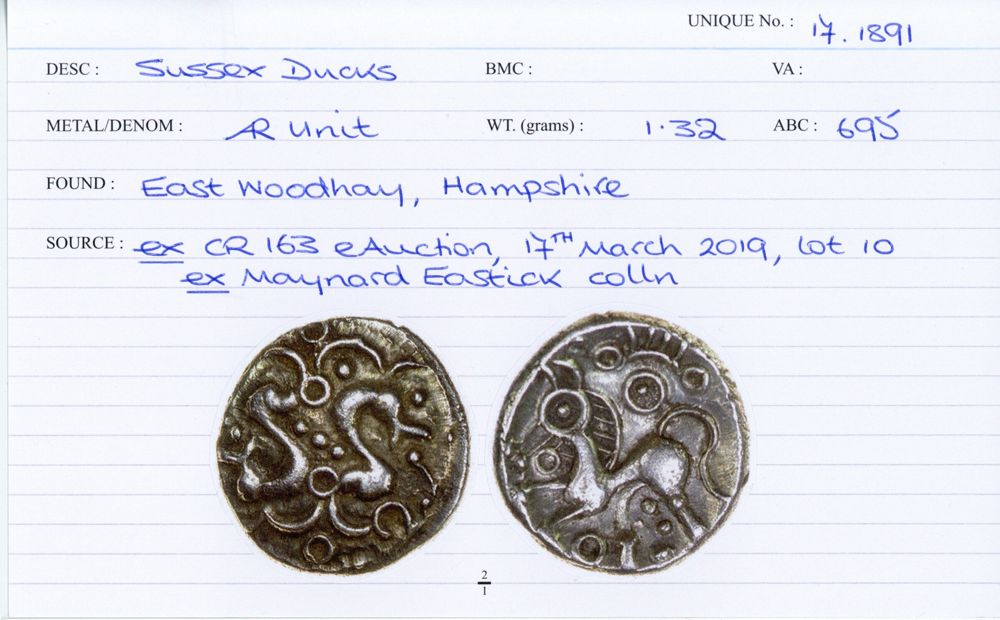 UNIQUE No. : 17.1891
DESC : Sussex Ducks BMC : VA :
METAL/DENOM : AR Unit WT. (grams) : 1.32 ABC : 695
FOUND : East Woodhay, Hampshire
SOURCE : ex CR 163 eAuction, 17TH March 2019, lot 10
ex Maynard Eastick colln
2
1